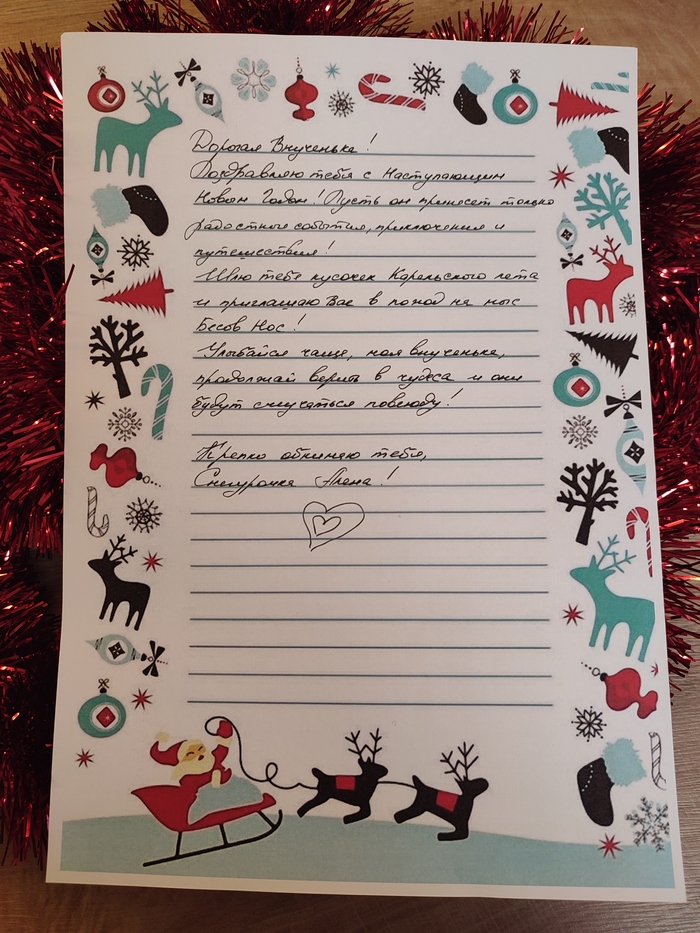 Дорогая Внученька!
Поздравляю тебя с Наступающим
Новым Годом! Пусть он принесет только
радостные события, приключения и
путешествия!
Шлю тебе кусочек Карельского лета
и приглашаю Вас в поход на мыс
Бесов Нос!
Улыбайся чаще, моя внученька,
продолжай верить в чудеса и они
будут случаться повсюду!
Крепко обнимаю тебя,
Снегурочка Алена!